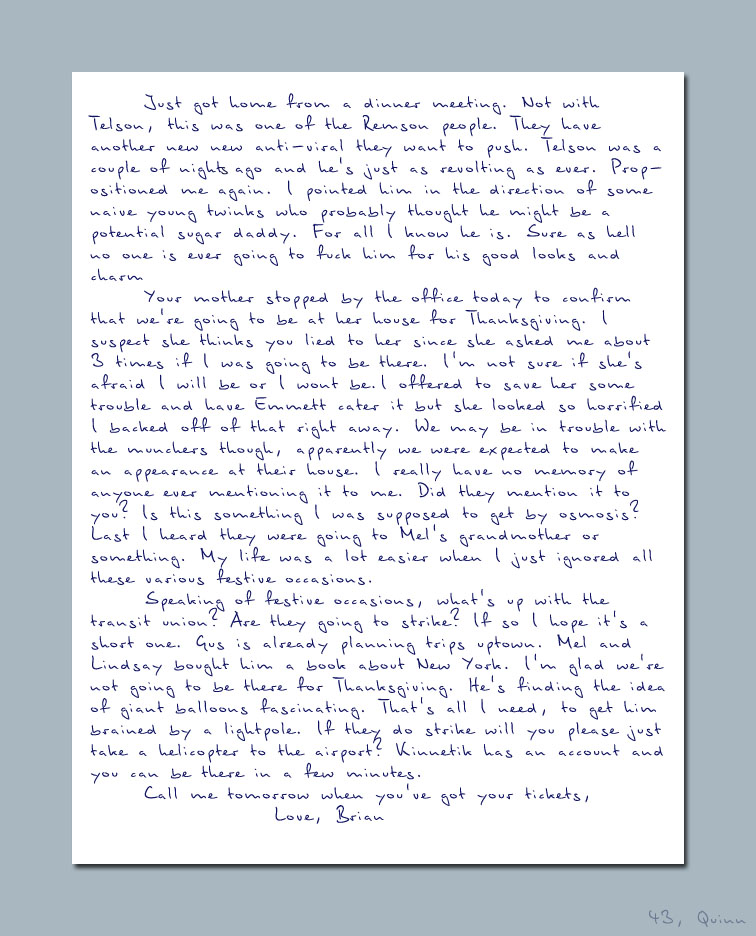 Just got home from a dinner meeting. Not with
Telson, this was one of the Remson people. They have
another new new anti-viral they want to push. Telson was a
couple of nights ago and he's just as revolting as ever. Prop-
ositioned me again. I pointed him in the direction of some
naive young twinks who probably thought he might be a
potential sugar daddy. For all I know he is. Sure as hell
no one is ever going to fuck him for his good looks and
charm
Your mother stopped by the office today to confirm
that we're going to be at her house for Thanksgiving. I
suspect she thinks you lied to her since she asked me about
3 times if I was going to be there. I'm not sure if she's
afraid I will be or I wont be. I offered to save her some
trouble and have Emmett cater it but she looked so horrified
I backed off of that right away. We may be in trouble with
the munchers though, apparently we were expected to make
an appearance at their house. I really have no memory of
anyone ever mentioning it to me. Did they mention it to
you? Is this something I was supposed to get by osmosis?
Last I heard they were going to Mel's grandmother or
something. My life was a lot easier when I just ignored all
these various festive occasions.
Speaking of festive occasions, what's up with the
transit union? Are they going to strike? If so I hope it's a
short one. Gus is already planning trips uptown. Mel and
Lindsay bought him a book about New York. I'm glad we're
not going to be there for Thanksgiving. He's finding the idea
of giant balloons fascinating. That's all I need, to get him
brained by a lightpole. If they do strike will you please just
take a helicopter to the airport? Kinnetik has an account and
you can be there in a few minutes.
Call me tomorrow when you've got your tickets,
Love, Brian
43, Quinn